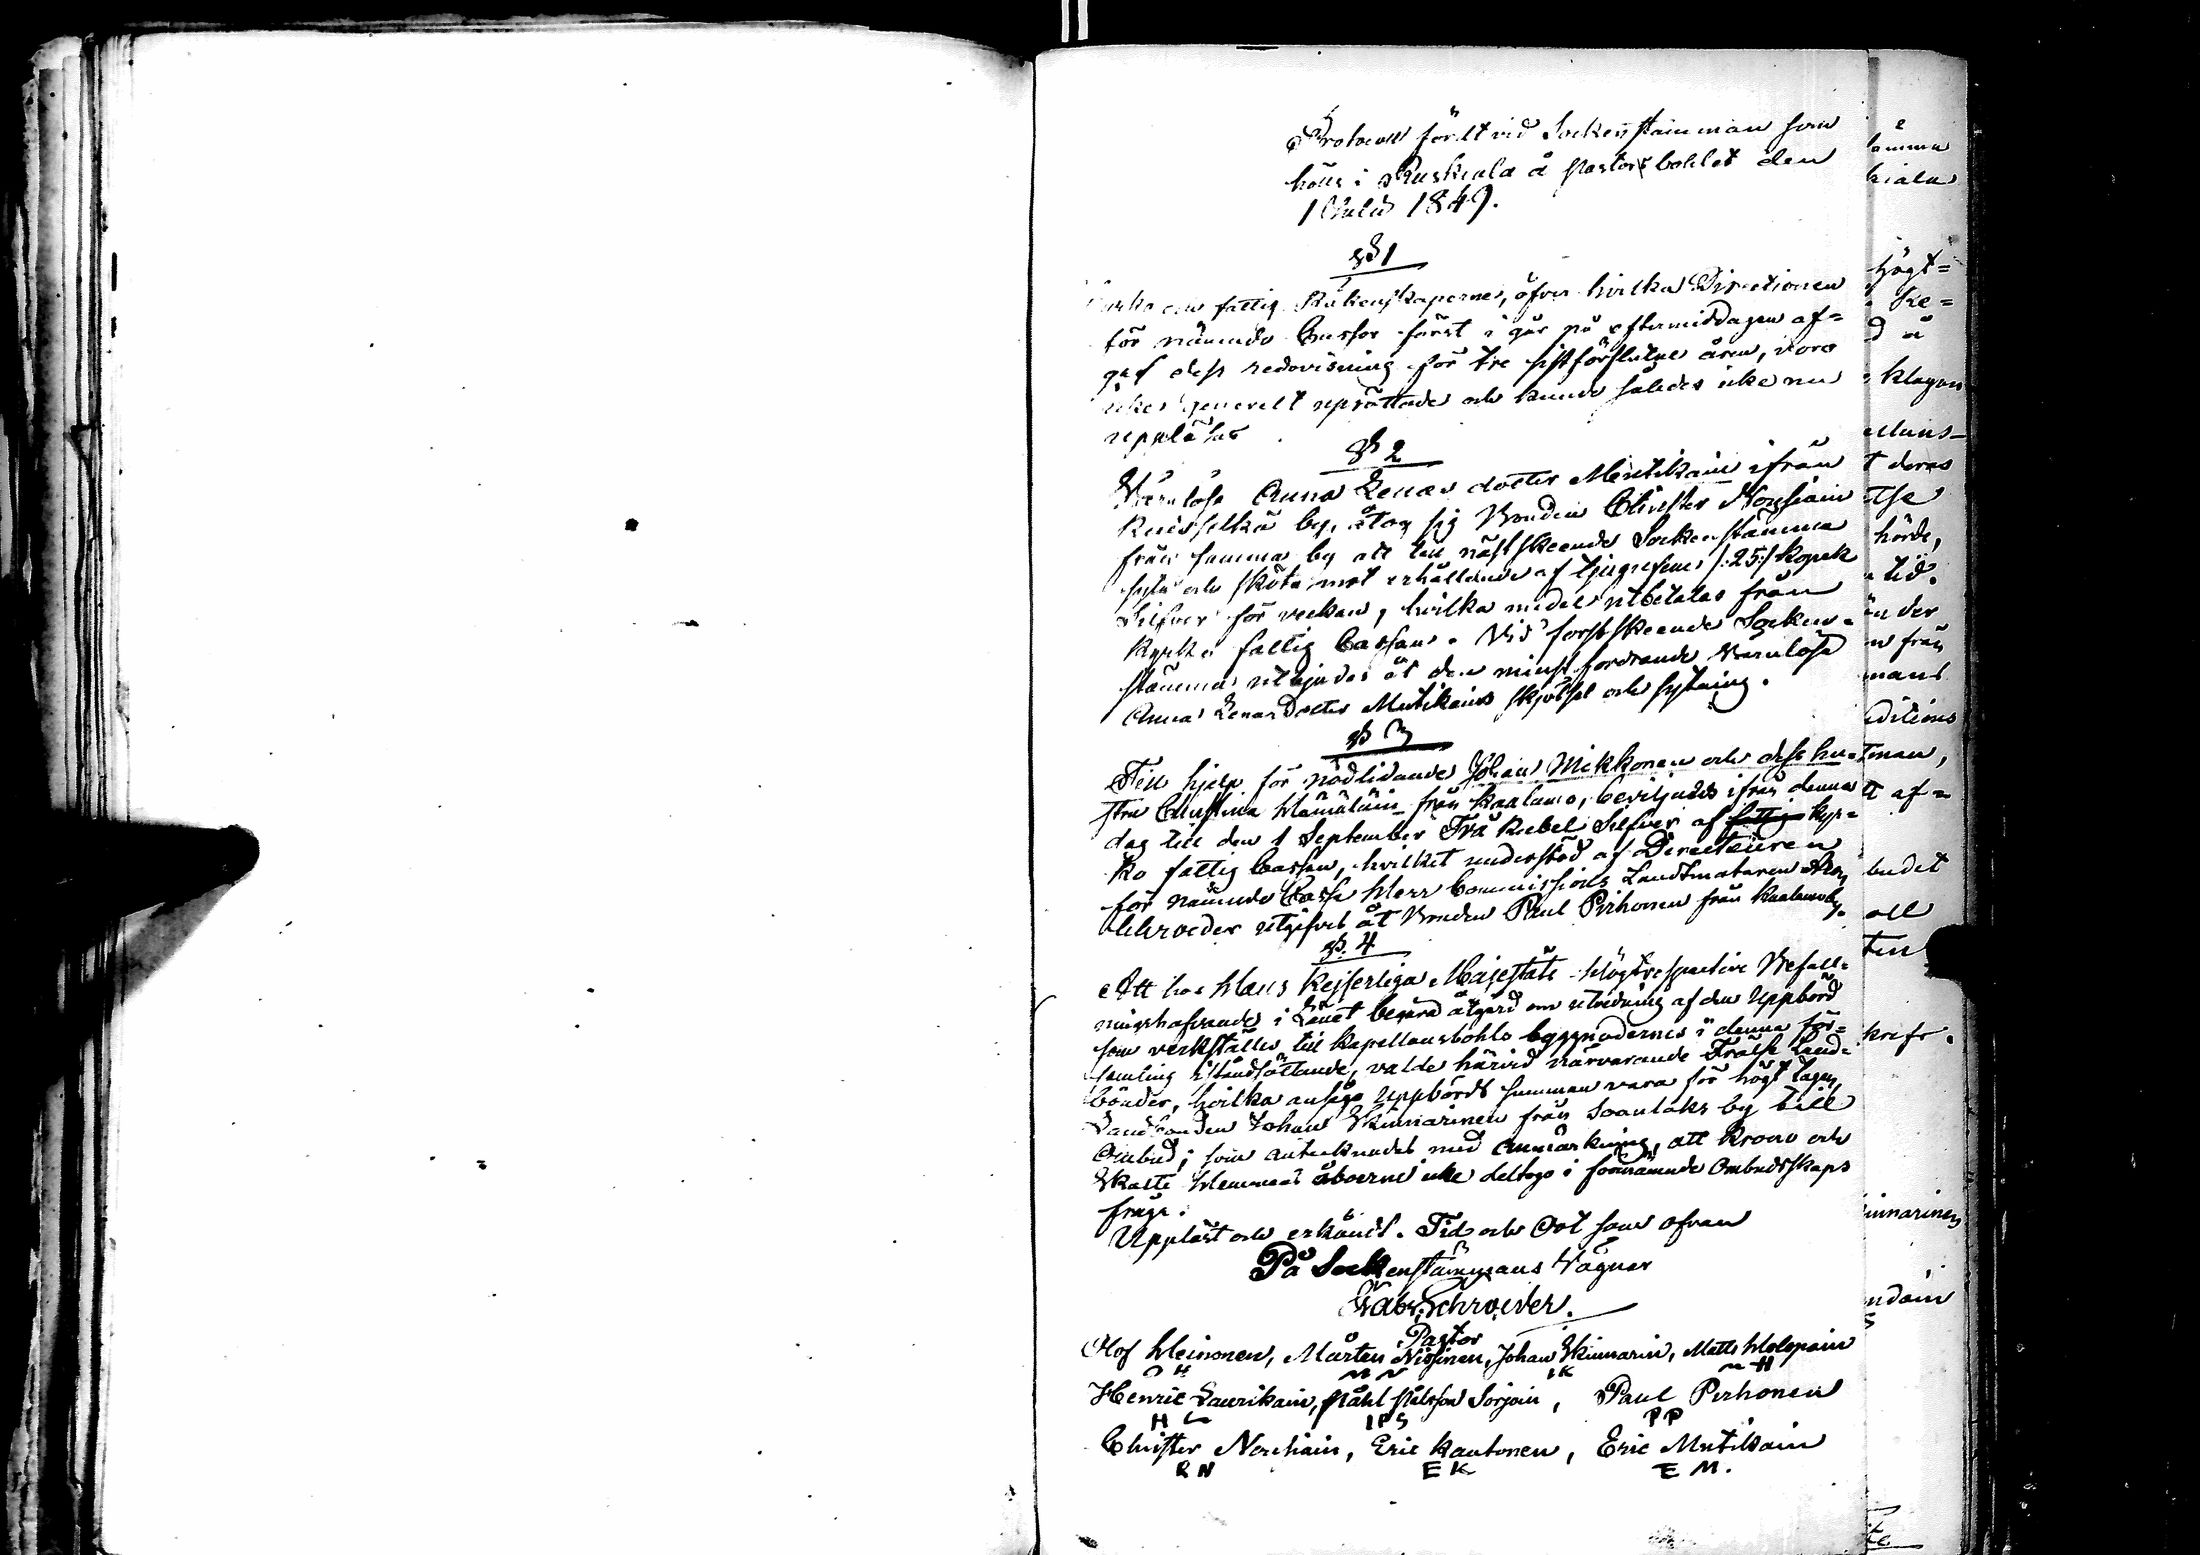 Protocoll fördt vid Sockenstämman som
hölls i Ruskiala å Pastors bohlet den
1 Julii 1849.
§ 1
fattig Räkenskaperne, öfver hvilka Directionen
för nämnde Cassor först i går på eftermiddagen af=
gaf dess redovisning för tre sistförflutne åren, voro
icke generelt uprättade och kunde således icke nu
uppläsas
§ 2
Värnlösa Anna Lenas dotter Mentikain ifrån
by, åtog sig Bonden Christer Nousiain
från samma by att till näst skeende Sockenstämma
syta och sköta mot erhållande af tjugufem /:25:/ kopek
Silfver för veckan, hvilka medel utbetalas från
Kyrko fattig Cassan. Vid först skeende Socken=
stämma utbjudes åt den minst fordrande värnlösa
Anna Lenas Dotter Mutikains skjötsel och sytning.
§ 3
Till hjelp för nödlidande Johan Mikkonen och dess hu=
stru Christina Hämäläin från Kaalamo, beviljades ifrån denna
dag till den 1 September Två Rubel Silfver af fattig Kyr=
ko fattig Cassan, hvilket understöd af Directeuren
för nämnde Cassa Herr Commissions Landtmätaren
Schroeder utgifvet åt Bonden Paul Pirhonen från Kaalamo by.
§. 4
Att hos Hans Kejserliga Majestäts Högtrespective Befall=
ningshafvande i Länet begära åtgärd om utredning af den Uppbörd
som verkställes till Kapellansbohls byggnadernes i denna för=
samling iståndsättande, valde härvid närvarande Frälse Land=
bönder, hvilka ansågo Uppbörds summan vara för högt tagen,
Landbonden Johan Kinnarinen från Soanlaks by till
Ombud; som antecknades med anmärkning, att Krono och
Skatte Hemmans åboerne icke deltogo i förenämnde Ombudsskaps
fråga.
Uppläst och erkändt. Tid och Ort som ofvan
På Sockenstämmans Vägnar
Gabr. Schroeder.
Pastor
Olof Heinonen, Mårten Nissinen, Johan Kinnarin, Matts Holopain
O H M N I K M H
Henric Laurikain, Påhl Pålsson Sorjoin, Paul Pirhonen
H L I P S P P
Christer Nousiain, Eric Kautonen, Eric Mutikain
R N E K E M.